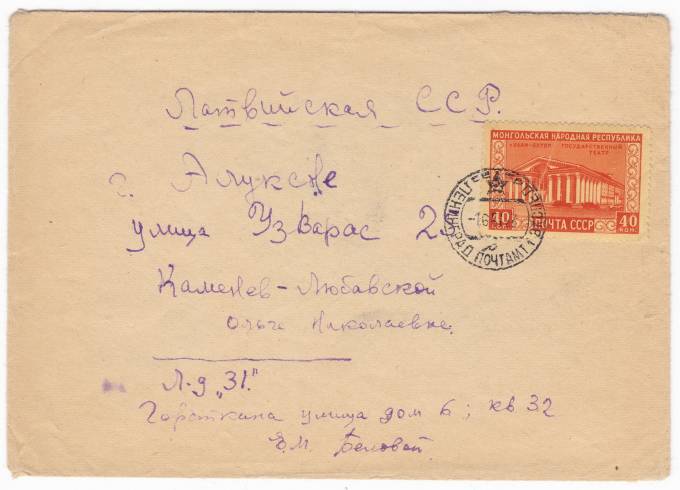 Латвийская ССР.
г. Алуксне
улица Узварас 25
Каменев-Любавской
Ольге Николаевне.
Л-д "31."
Горсткина улица дом 6; кв 32
Е.М. Беловой.
МОНГОЛЬСКАЯ НАРОДНАЯ РЕСПУБЛИКА
УЛАН-БАТОР ГОСУДАРСТВЕННЫЙ
ТЕАТР
40 ПОЧТА СССР 40
КОП. КОП.
ЛЕНИНГРАД ПОЧТАМТ 1